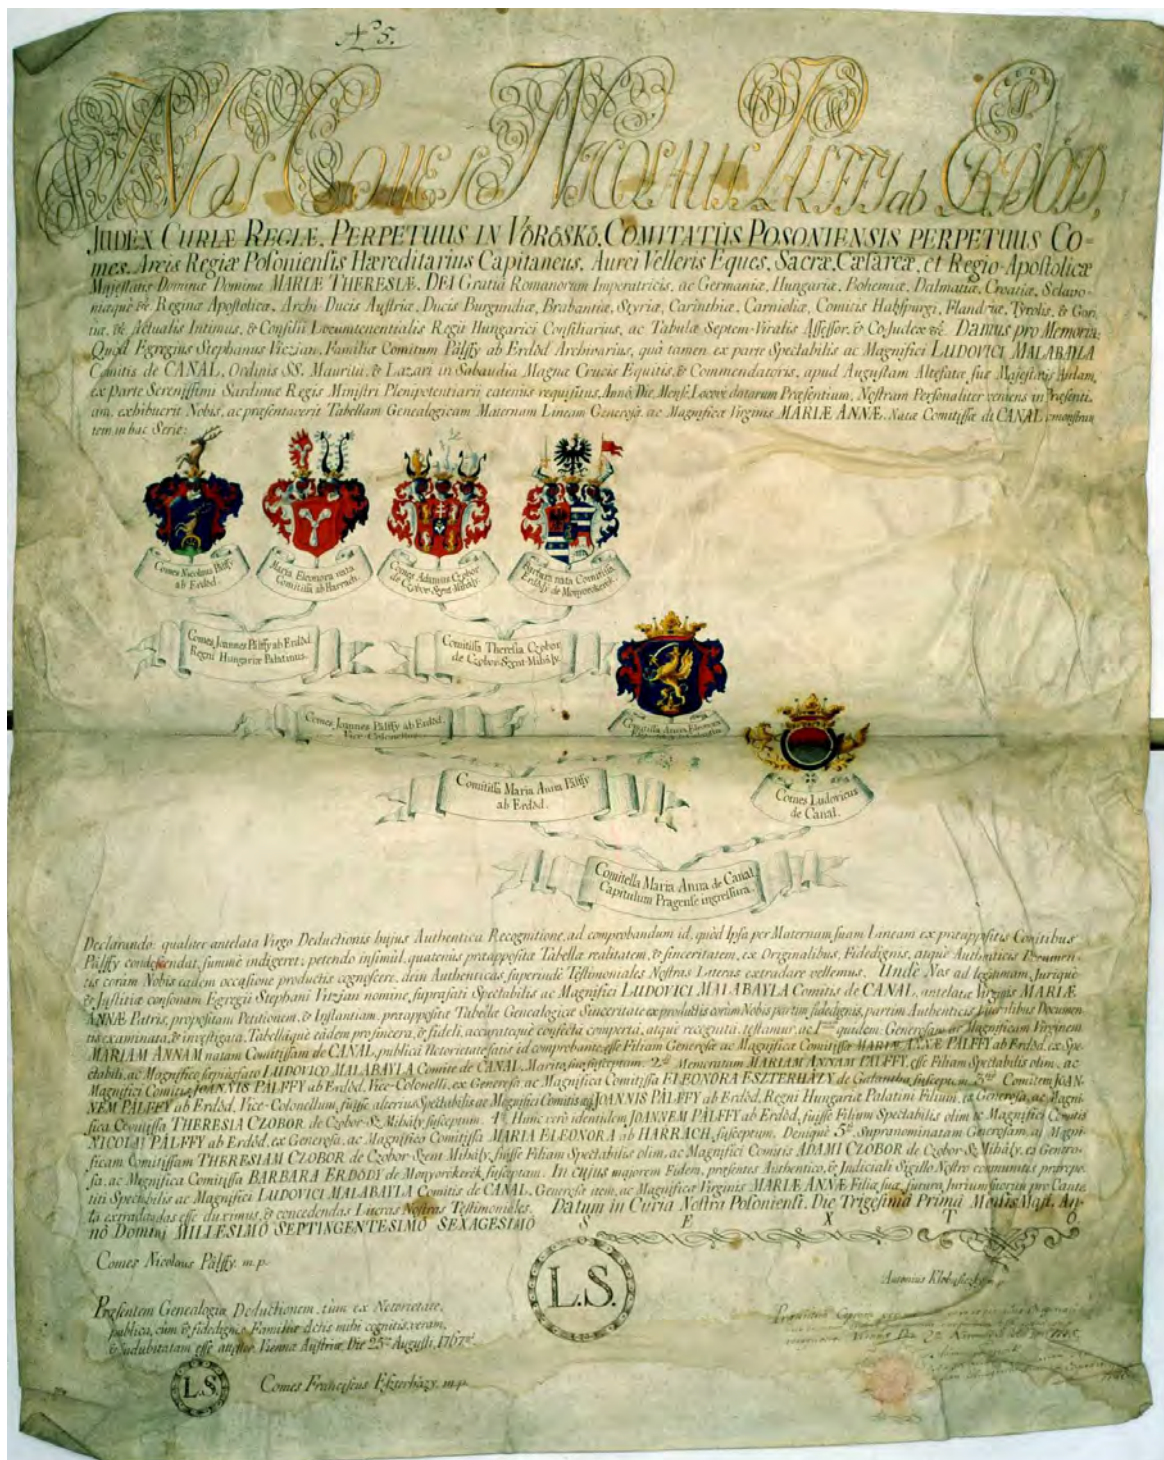 Nº 5.
NOS COMES NICOLAUS PÁLFFY ab ERDÖD,
JUDEX CURIÆ REGIÆ, PERPETUUS IN VÖRÖSKÖ, COMITATÛS POSONIENSIS PERPETUUS CO=
mes, Arcis Regiæ Posoniensis Hæreditarius Capitaneus, Aurei Velleris Eques, Sacræ, Cæsareæ, et Regio-Apostolicæ
Majestatis Dominæ Dominæ MARIÆ THERESIÆ, DEI Gratiâ Romanorum Imperatricis, ac Germaniæ, Hungariæ, Bohemiæ, Dalmatiæ, Croatiæ, Sclavo-
niæque &c. Reginæ Apostolicæ, Archi Ducis Austriæ, Ducis Burgundiæ, Brabantiæ, Styriæ, Carinthiæ, Carnioliæ, Comitis Habspurgi, Flandriæ, Tyrolis, & Gori
tiæ, &c. Actualis Intimus, & Consilii Locumtenentialis Regii Hungarici Consiliarius, ac Tabulæ Septem-Viralis Assessor, & CoJudex &c. Damus pro Memoria:
Quòd Egregius Stephanus Viczian, Familiæ Comitum Pálffy ab Erdöd Archivarius, quà tamen ex parte Spectabilis ac Magnifici LUDOVICI MALABAYLA
Comitis de CANAL, Ordinis SS. Mauritii, & Lazari in Sabaudia Magnæ Crucis Equitis, & Commendatoris, apud Augustam Altefatæ suæ Majestatis Aulam,
ex Parte Serenissimi Sardiniæ Regis Ministri Plenipotentiarii catenus requisitus, Annô, Die, Mense, Locóve datarum Præsentium, Nostram Personaliter veniens in Præsenti-
am, exhibuerit Nobis, ac præsentaverit Tabellam Genealogicam Maternam Lineam Generosæ, ac Magnificæ Virginis MARIÆ ANNÆ, Natæ Comitissæ de CANAL, emonstran
tem in hac Serie:
Comes Nicolaus Pálffy
ab Erdöd.
Maria Eleonora nata
Comitissa ab Harrach.
Comes Adamus Czobor
de Czobor-Szent-Mihály.
Barbara nata Comitissa
Erdödy de Monyorókerék.
Comes Joannes Pálffy ab Erdöd
Regni Hungariæ Palatinus.
Comitissa Theresia Czobor
de Czobor-Szent Mihály.
Comes Joannes Pálffy ab Erdöd.
Vice-Colonellus.
Comitissa Anna Eleonora
Comitissa Maria Anna Pálffy
ab Erdöd.
Comes Ludovicus
de Canal.
Comitella Maria Anna de Canal
Capitulum Pragense ingressura.
Declarando: qualiter antelata Virgo Deductionis hujus Authenticâ Recognitione, ad comprobandum id, quòd Ipsa per Maternam suam Lineam ex præappositis Comitibus
Pálffy condescendat, summè indigeret; petendo insimul, quatenus præappositæ Tabellæ realitatem, & sinceritatem, ex Originalibus, Fidedignis, atque Authenticis Documen-
tis coram Nobis eadem occasione productis cognoscere, dein Authenticas superinde Testimoniales Nostras Literas extradare vellemus. Unde Nos ad legitimam, Jurique
& Justitiæ consonam Egregii Stephani Viszian nomine, suprafati Spectabilis ac Magnifici LUDOVICI MALABAYLA Comitis de CANAL, antelatæ Virginis MARIÆ
ANNÆ Patris, propositam Petitionem, & Instantiam, præappositæ Tabellæ Genealogicæ Sinceritate ex productis coràm Nobis partim fidedignis, partim Authenticis Literalibus Documen-
tis examinata, & investigata, Tabellâque eâdem pro sincera, & fideli, accuratèque confecta comperta, atque recognita, testamur ac 1mo quidem: Generosam ac Magnificam Virginem
MARIAM ANNAM natam Comitissam de CANAL, publicâ Notorietate satis id comprobante, esse Filiam Generosæ ac Magnificæ Comitissæ MARIÆ ANNÆ PÁLFFY ab Erdöd, ex Spe-
ctabili, ac Magnifico sæpiusfato LUDOVICO MALABAYLA Comite de CANAL, Marito suo susceptam. 2do Memoratam MARIAM ANNAM PÁLFFY, esse Filiam Spectabilis olim, ac
Magnifici Comitis JOANNIS PÁLFFY ab Erdöd, Vice-Colonelli, ex Generosa, ac Magnifica Comitissa ELEONORA ESZTERHÁZY de Galantha susceptam. 3tio Comitem JOAN-
NEM PÁLFFY ab Erdöd, Vice-Colonellum, fuisse alterius Spectabilis ac Magnifici Comitis JOANNIS PÁLFFY ab Erdöd, Regni Hungariæ Palatini Filium, ex Generosa, ac Magni-
fica Comitissa THERESIA CZOBOR de Czobor-Sz. Mihály susceptum. 4to Hunc verò identidem JOANNEM PÁLFFY ab Erdöd, fuisse Filium Spectabilis olim ac Magnifici Comitis
NICOLAI PÁLFFY ab Erdöd, ex Generosa, ac Magnifica Comitissa MARIA ELEONORA ab HARRACH, susceptum. Denique 5to Supranominatam Generosam, ac Magni-
ficam Comitissam THERESIAM CZOBOR de Czobor Szent Mihály, fuisse Filiam Spectabilis olim, ac Magnifici Comitis ADAMI CZOBOR de Czobor Sz. Mihály, ex Genero-
sa, ac Magnifica Comitissa BARBARA ERDÖDY de Monyorókerék, susceptam. In cujus majorem Fidem, præsentes Authentico, & Judiciali Sigillo Nostro communitas præreपे-
titi Spectabilis ac Magnifici LUDOVICI MALABAYLA Comitis de CANAL, Generosæ item, ac Magnificæ Virginis MARIÆ ANNÆ Filiæ suæ, futura Jurium suorum pro Caute-
la extradandas esse duximus, & concedendas Literas Nostras Testimoniales. Datum in Curia Nostra Posoniensi. Die Trigesima Prima Mensis Maji. An-
nô Domini MILLESIMÔ SEPTINGENTESIMÔ SEXAGESIMÔ SEXTÔ
Comes Nicolaus Pálffy. m.p.
L.S.
Antonius Klobusiczky m.p.
Præsentem Genealogiæ Deductionem, tum ex Notorietate
publica, cùm & fidedignis Familiæ Actis mihi cognitis, veram,
& indubitatam esse attestor. Viennæ Austriæ Die 23a Augusti, 1767mi
L.S.
Comes Franciscus Eszterházy. m.p.